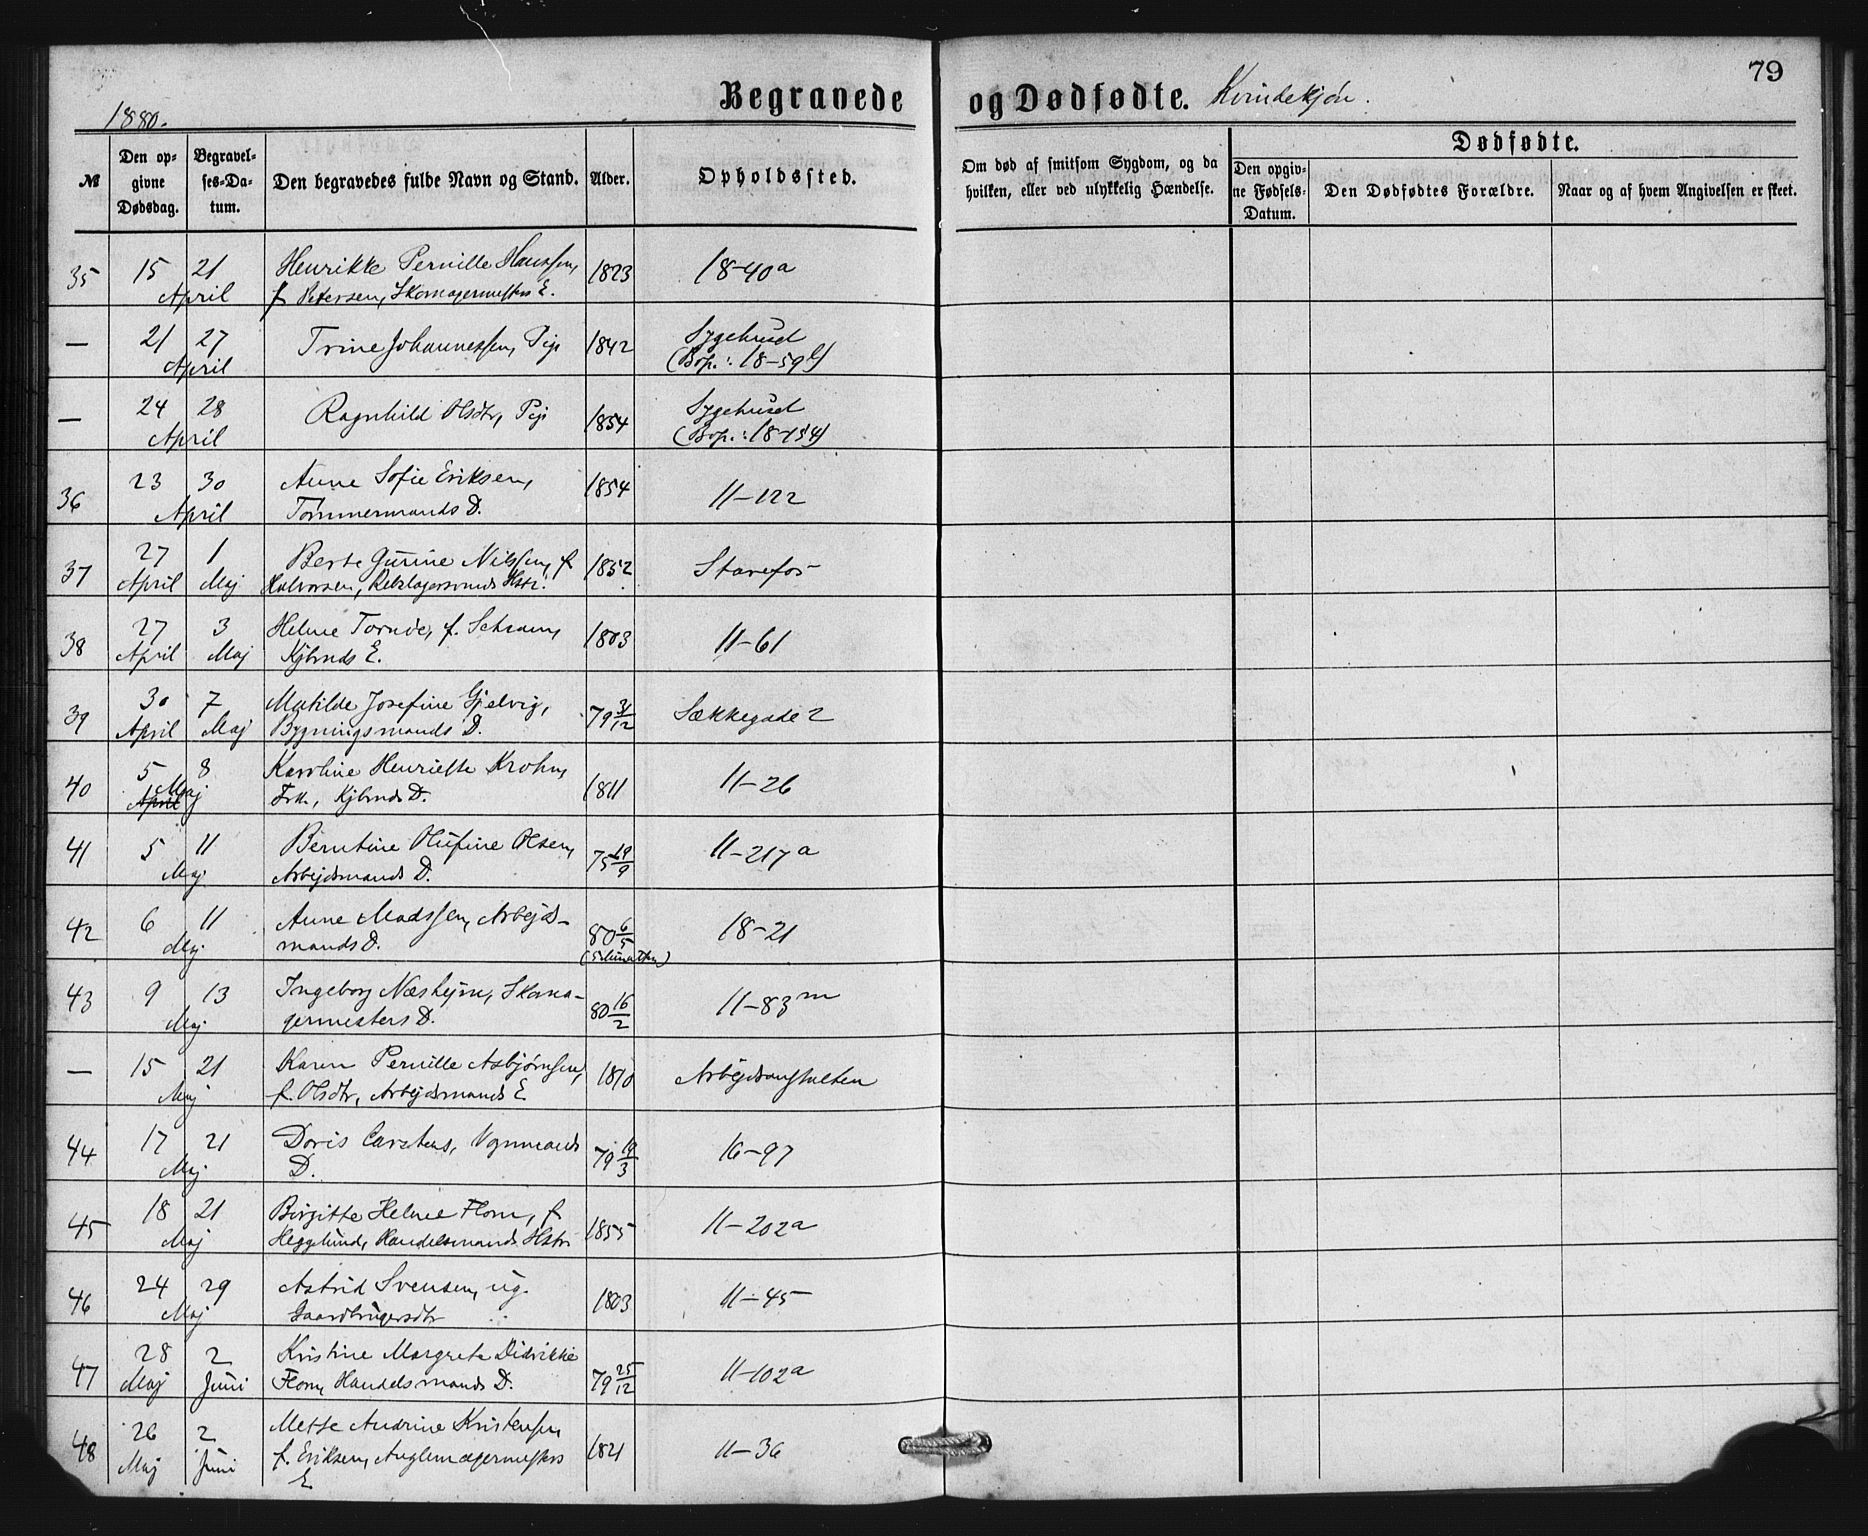 79
1880.
Begravede og Dødfødte. Kvindekjøn.
№
Den opgivne Dødsdag.
Begravelses-Datum.
Den begravedes fulde Navn og Stand.
Alder.
Opholdssted.
Om død af smitsom Sygdom, og da hvilken, eller ved ulykkelig Hændelse.
Dødfødte.
Den opgivne Fødsels-Datum.
Den Dødfødtes Forældre.
Naar og af hvem Angivelsen er skeet.
35 15 21 Henrikke Pernille Hanssen, 1823 18-40a
April f. Petersen, Skomagermesters E.
— 21 27 Trine Johannessen, Pige 1842 Sygehuset
April (Bop.: 18-59b)
— 24 28 Ragnhild Olsdtr, Pige 1854 Sygehuset
April (Bop.: 18-154)
36 23 30 Anne Sofie Eriksen, 1854 11-122
April Tømmermands D.
37 27 1 Berte Gurine Nilssen, f. 1852 Starefos
April Maj Halvorsen, Rebslagersvends Hstr.
38 27 3 Helene Tornøe, f. Schram, 1803 11-61
April Maj Kjbmds E.
39 30 7 Matilde Josefine Gjelvig, 79 31/12 Sækkegade 2
April Maj Bygningsmands D.
40 5 8 Karoline Henriette Krohn, 1811 11-26
April Maj Frk., Kjbmds D.
41 5 11 Berntine Olufine Olsen, 75 19/9 11-217a
Maj Arbejdsmands D.
42 6 11 Anne Madssen, Arbejds- 80 6/5 18-21
Maj mands D.
43 9 13 Ingeborg Næshejm, Skoma- 80 16/2 11-83m
Maj germesters D.
— 15 21 Karen Pernille Asbjørnsen, 1810 Arbejdsanstalten
Maj f. Olsdtr, Arbejdsmands E
44 17 21 Doris Carstens, Vognmands 79 19/3 16-97
Maj D.
45 18 21 Birgitte Helene Flom, f. 1855 11-202a
Maj Hegglund, Handelsmands Hstr
46 24 29 Astrid Svensen, ug. 1803 11-45
Maj Gaardbrugersdtr
47 28 2 Kristine Margrete Didrikke 79 25/12 11-102a
Maj Juni Flom, Handelsmands D.
48 26 2 Mette Andrine Kristensen 1821 11-36
Maj Juni f. Eriksen, Anglemagermesters
E